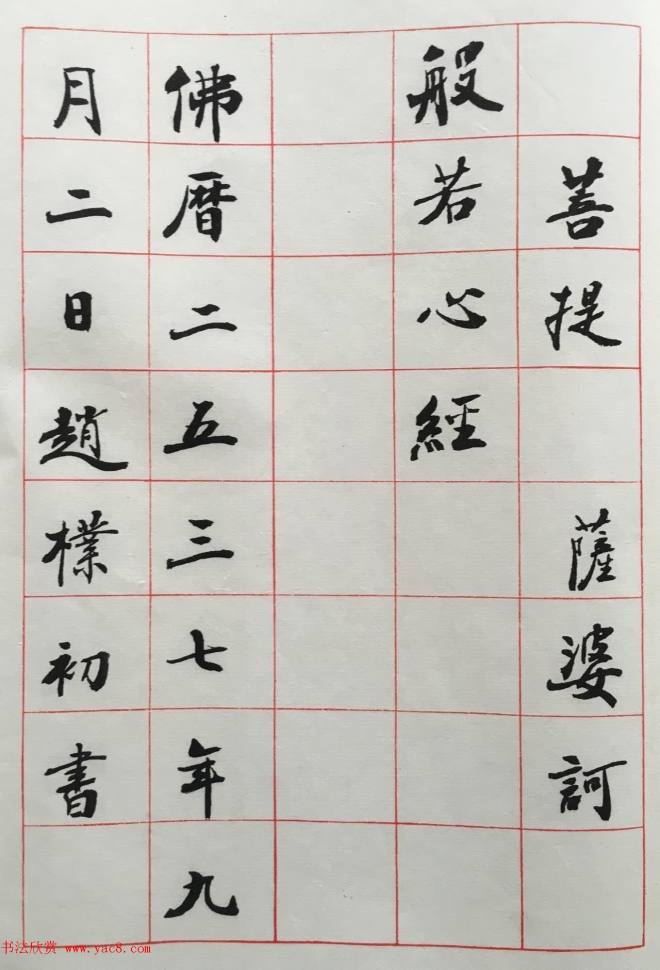 菩提 薩婆訶
般若心經
佛曆二五三七年九
月二日趙樸初書
书法欣赏 www.yac8.com